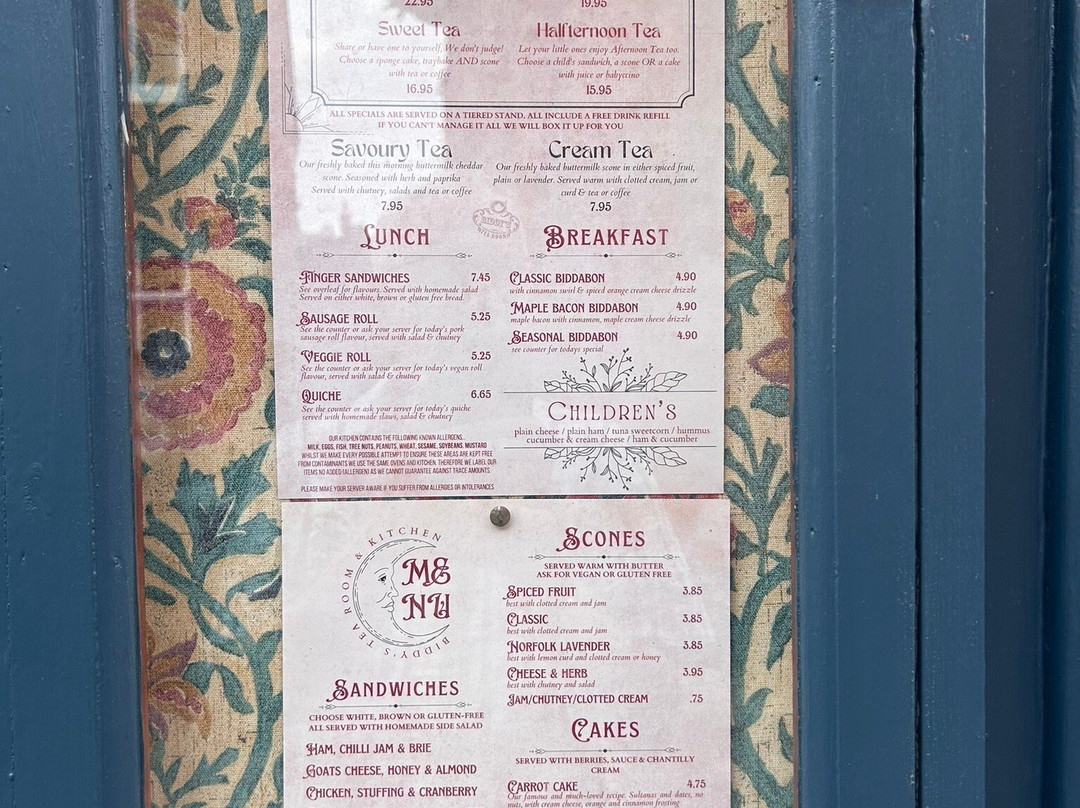 22.95
19.95
Sweet Tea
Share or have one to yourself, We don't judge!
Choose a sponge cake, traybake AND scone
with tea or coffee
16.95
Halfternoon Tea
Let your little ones enjoy Afternoon Tea too.
Choose a child's sandwich, a scone OR a cake
with juice or babyccino
15.95
ALL SPECIALS ARE SERVED ON A TIERED STAND. ALL INCLUDE A FREE DRINK REFILL
IF YOU CAN'T MANAGE IT ALL WE WILL BOX IT UP FOR YOU
Savoury Tea
Our freshly baked this morning buttermilk cheddar
scone. Seasoned with herb and paprika
Served with chutney, salads and tea or coffee
7.95
Cream Tea
Our freshly baked buttermilk scone in either spiced fruit,
plain or lavender. Served warm with clotted cream, jam or
curd & tea or coffee
7.95
BIDDY'S
LUNCH
FINGER SANDWICHES 7.45
See overleaf for flavours. Served with homemade salad
Served on either white, brown or gluten free bread.
SAUSAGE ROLL 5.25
See the counter or ask your server for today's pork
sausage roll flavour, served with salad & chutney
VEGGIE ROLL 5.25
See the counter or ask your server for today's vegan roll
flavour, served with salad & chutney
QUICHE 6.65
See the counter or ask your server for today's quiche
served with homemade slaws, salad & chutney
OUR KITCHEN CONTAINS THE FOLLOWING KNOWN ALLERGENS...
MILK, EGGS, FISH, TREE NUTS, PEANUTS, WHEAT, SESAME, SOYBEANS, MUSTARD
WHILST WE MAKE EVERY POSSIBLE ATTEMPT TO ENSURE THESE AREAS ARE KEPT FREE
FROM CONTAMINANTS WE USE THE SAME OVENS AND KITCHEN. THEREFORE WE LABEL OUR
ITEMS NO ADDED (ALLERGEN) AS WE CANNOT GUARANTEE AGAINST TRACE AMOUNTS.
PLEASE MAKE YOUR SERVER AWARE IF YOU SUFFER FROM ALLERGIES OR INTOLERANCES
BREAKFAST
CLASSIC BIDDABON 4.90
with cinnamon swirl & spiced orange cream cheese drizzle
MAPLE BACON BIDDABON 4.90
maple bacon with cinnamon, maple cream cheese drizzle
SEASONAL BIDDABON 4.90
see counter for todays special
CHILDREN'S
plain cheese / plain ham / tuna sweetcorn / hummus
cucumber & cream cheese / ham & cucumber
BIDDY'S TEA ROOM & KITCHEN
ME
NU
SANDWICHES
CHOOSE WHITE, BROWN OR GLUTEN-FREE
ALL SERVED WITH HOMEMADE SIDE SALAD
HAM, CHILLI JAM & BRIE
GOATS CHEESE, HONEY & ALMOND
CHICKEN, STUFFING & CRANBERRY
SCONES
SERVED WARM WITH BUTTER
ASK FOR VEGAN OR GLUTEN FREE
SPICED FRUIT 3.85
best with clotted cream and jam
CLASSIC 3.85
best with clotted cream and jam
NORFOLK LAVENDER 3.85
best with lemon curd and clotted cream or honey
CHEESE & HERB 3.95
best with chutney and salad
JAM/CHUTNEY/CLOTTED CREAM .75
CAKES
SERVED WITH BERRIES, SAUCE & CHANTILLY
CREAM
CARROT CAKE 4.75
Our famous and much-loved recipe. Sultanas and dates, no
nuts, with cream cheese, orange and cinnamon frosting